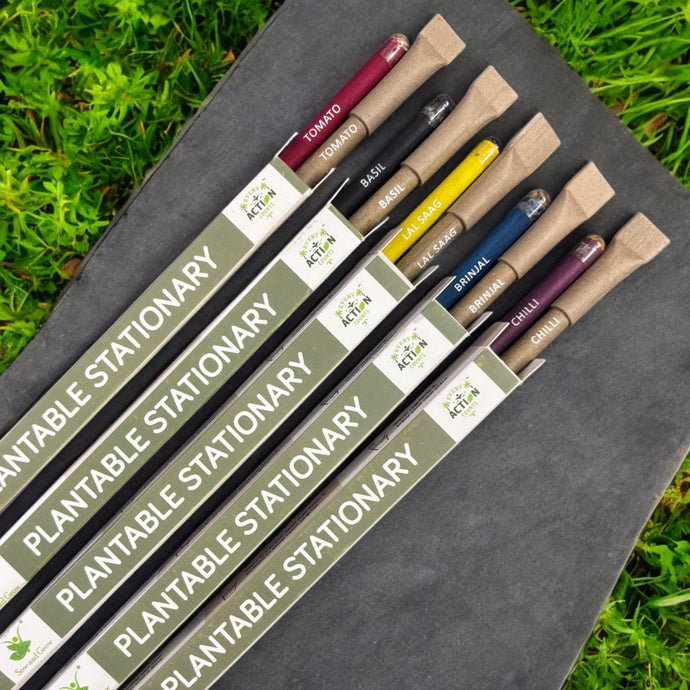 TOMATO
TOMATO
BASIL
BASIL
LAL SAAG
LAL SAAG
BRINJAL
BRINJAL
CHILLI
CHILLI
EVERY
ACTION
COUNTS
PLANTABLE STATIONARY
EVERY
ACTION
COUNTS
PLANTABLE STATIONARY
EVERY
ACTION
COUNTS
PLANTABLE STATIONARY
Sow and Grow
EVERY
ACTION
COUNTS
PLANTABLE STATIONARY
EVERY
ACTION
COUNTS
PLANTABLE STATIONARY